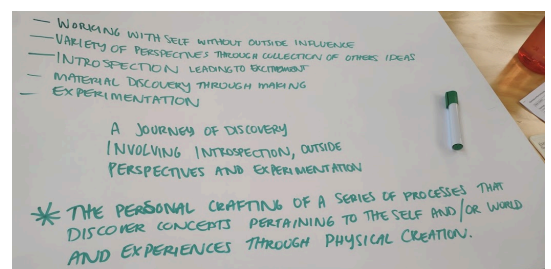 — WORKING WITH SELF WITHOUT OUTSIDE INFLUENCE
— VARIETY OF PERSPECTIVES THROUGH COLLECTION OF OTHERS IDEAS
— INTROSPECTION LEADING TO EXCITEMENT
— MATERIAL DISCOVERY THROUGH MAKING
— EXPERIMENTATION
A JOURNEY OF DISCOVERY
INVOLVING INTROSPECTION, OUTSIDE
PERSPECTIVES AND EXPERIMENTATION
* THE PERSONAL CRAFTING OF A SERIES OF PROCESSES THAT
DISCOVER CONCEPTS PERTAINING TO THE SELF AND/OR WORLD
AND EXPERIENCES THROUGH PHYSICAL CREATION.